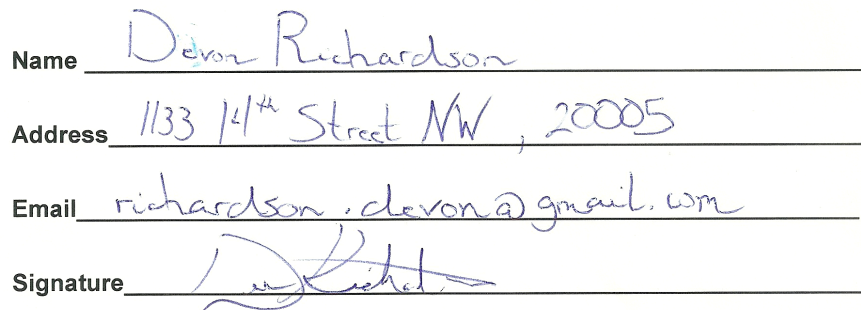 Name Devon Richardson
Address 1133 14th Street NW, 20005
Email richardson.devon@gmail.com
Signature